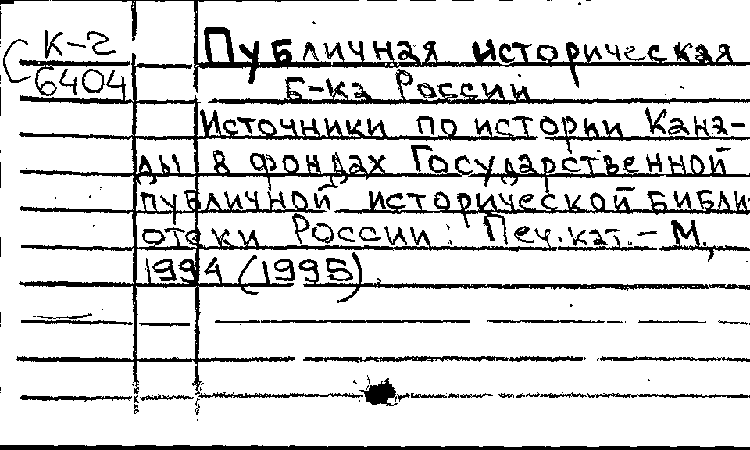 К-2
6404
Публичная историческая
б-ка России
Источники по истории Кана-
ды в фондах Государственной
публичной исторической библи-
отеки России: Печ.кат. - М.,
1994 (1995).